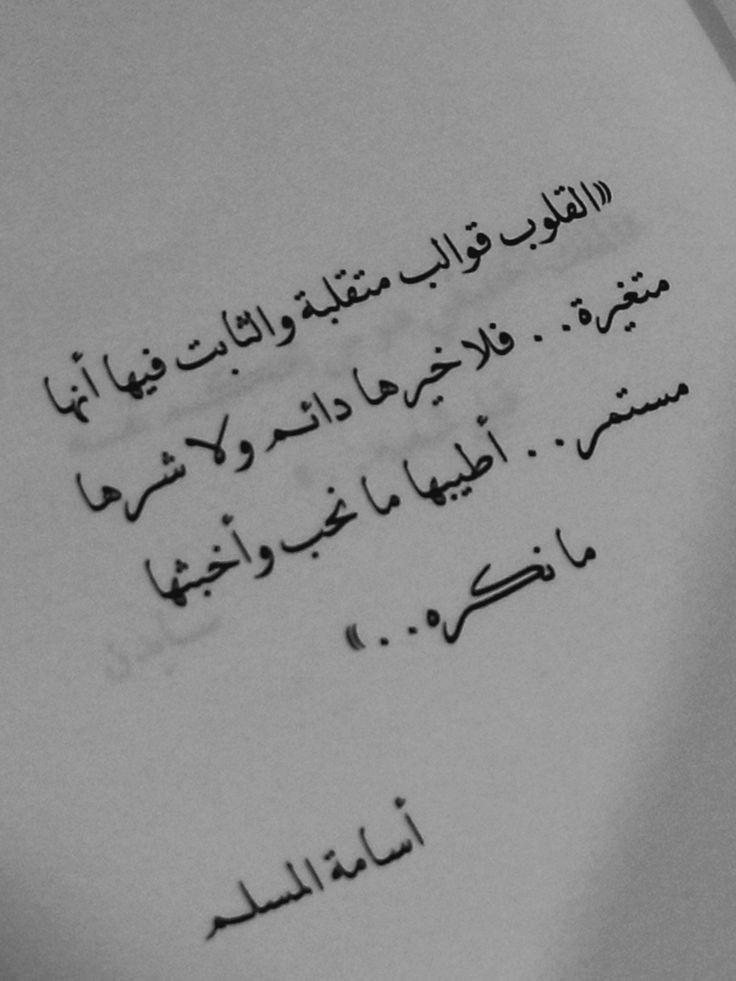 «القلوب قوالب متقلبة والثابت فيها أنها
متغيرة.. فلا خيرها دائم ولا شرها
مستمر.. أطيبها ما نحب وأخبثها
ما نكره..»
أسامة المسلم